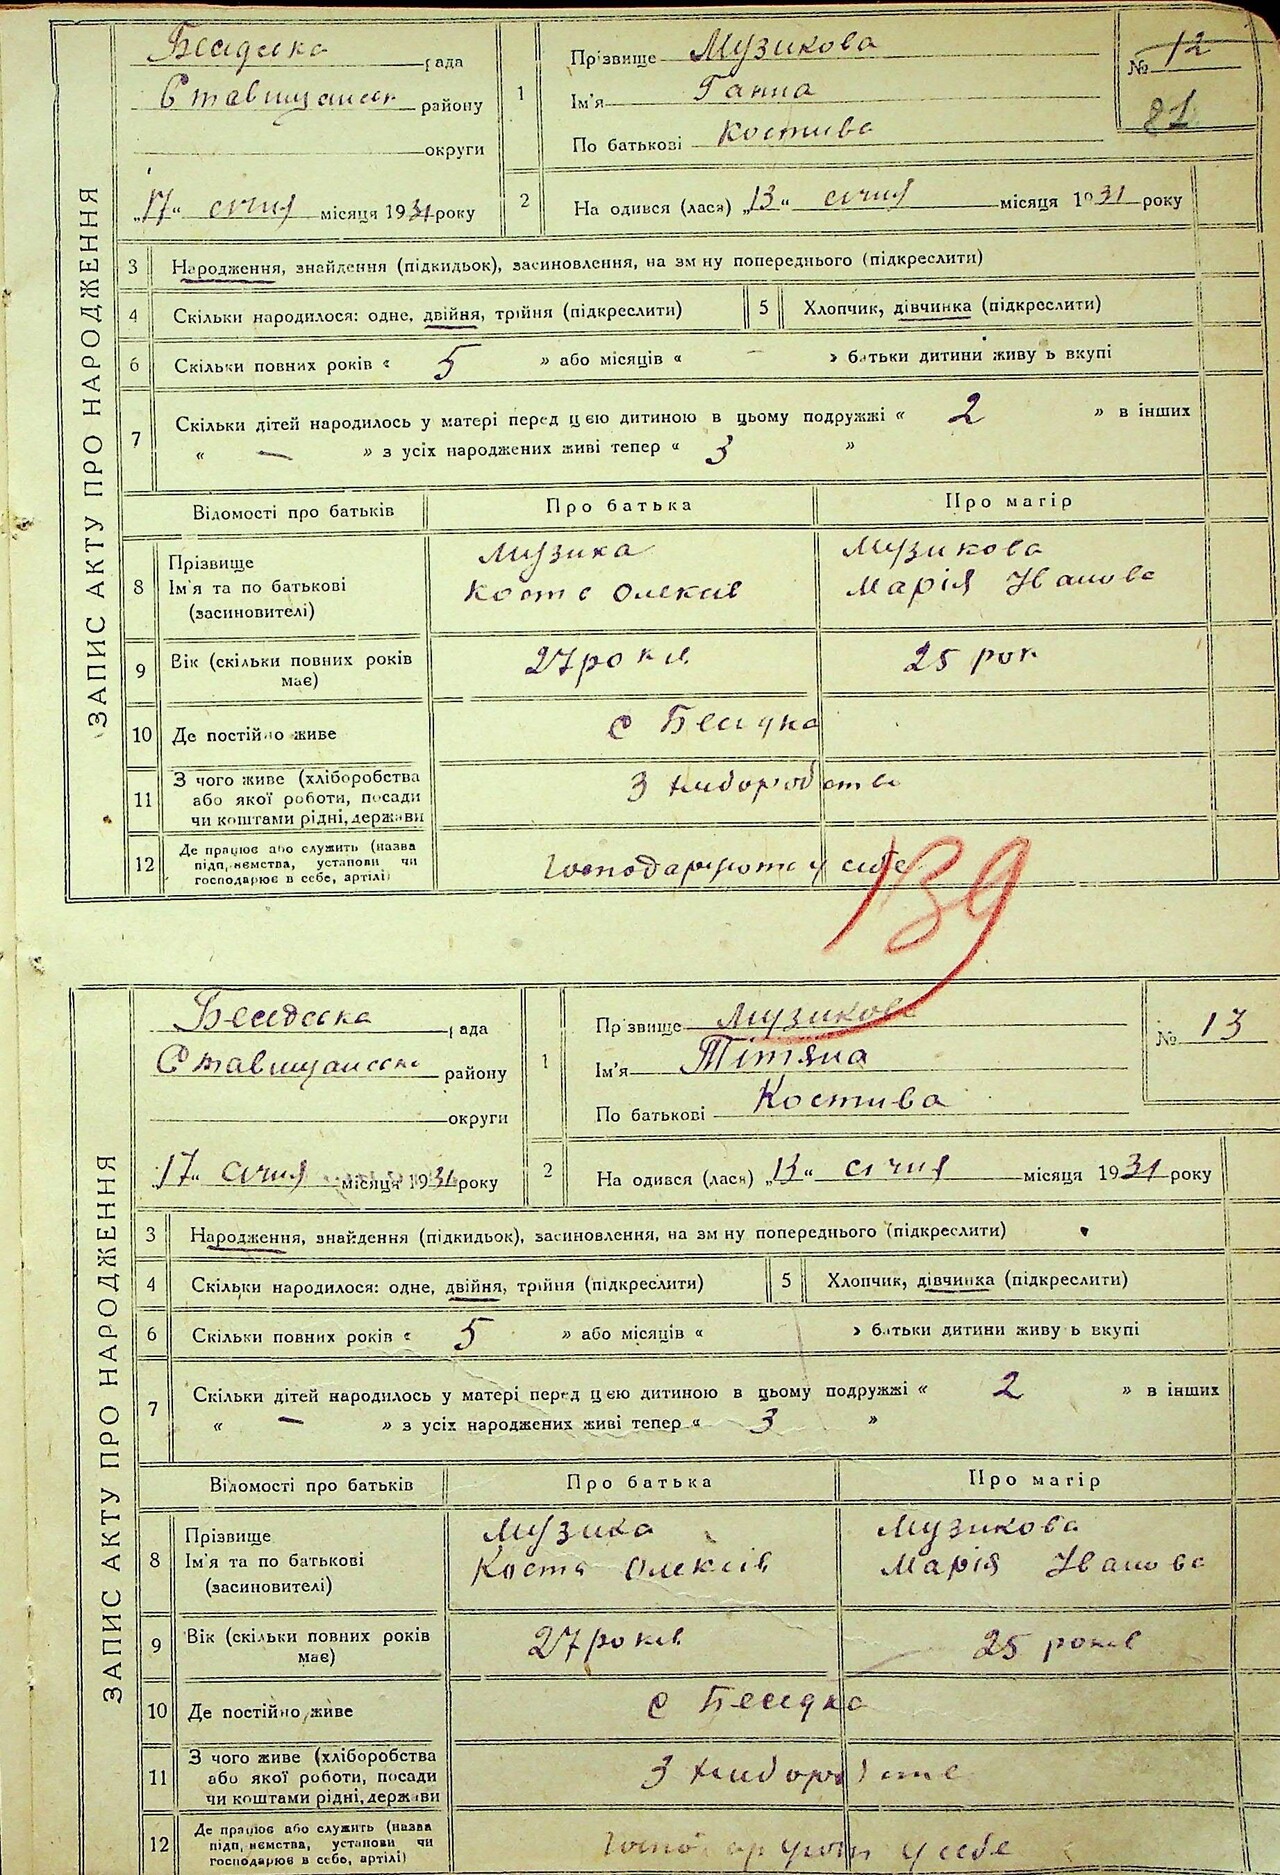 Бесідська рада
Ставищанськ району
округи
„17“ січня місяця 1931 року
1
Прізвище Музикова
Ім'я Ганна
По батькові Костива
№ 12
81
2
На одився (лася) „13“ січня місяця 1931 року
ЗАПИС АКТУ ПРО НАРОДЖЕННЯ
3 Народження, знайдення (підкидьок), засиновлення, на зм ну попереднього (підкреслити)
4 Скільки народилося: одне, двійня, трійня (підкреслити) 5 Хлопчик, дівчинка (підкреслити)
6 Скільки повних років « 5 » або місяців « – » батьки дитини живу ь вкупі
7 Скільки дітей народилось у матері перед цією дитиною в цьому подружжі « 2 » в інших
« — » з усіх народжених живі тепер « 3 »
Відомості про батьків Про батька Про матір
8 Прізвище Музика Музикова
Ім'я та по батькові Кост Олексів Марія Іванова
(засиновителі)
9 Вік (скільки повних років 27 років 25 рок
має)
10 Де постійно живе с Бесідка
11 З чого живе (хліборобства З хліборобства
або якої роботи, посади
чи коштами рідні, держави
12 Де працює або служить (назва
підп, нємства, установи чи Господарюють у себе
господарює в себе, артілі)
139
Бесідська рада
Ставищанськ району
округи
„17“ січня місяця 1931 року
1
Пр звище Музикова
Ім'я Тітяна
По батькові Костива
№ 13
2
На одився (лася) „13“ січня місяця 1931 року
ЗАПИС АКТУ ПРО НАРОДЖЕННЯ
3 Народження, знайдення (підкидьок), засиновлення, на зм ну попереднього (підкреслити)
4 Скільки народилося: одне, двійня, трійня (підкреслити) 5 Хлопчик, дівчинка (підкреслити)
6 Скільки повних років « 5 » або місяців « » батьки дитини живу ь вкупі
7 Скільки дітей народилось у матері перед цією дитиною в цьому подружжі « 2 » в інших
« — » з усіх народжених живі тепер « 3 »
Відомості про батьків Про батька Про матір
8 Прізвище Музика Музикова
Ім'я та по батькові Костя Олексів Марія Іванова
(засиновителі)
9 Вік (скільки повних років 27 років 25 років
має)
10 Де постійно живе с Бесідка
11 З чого живе (хліборобства З хліборобства
або якої роботи, посади
чи коштами рідні, держави
12 Де працює або служить (назва
підп, нємства, установи чи Господарують у себе
господарює в себе, артілі)